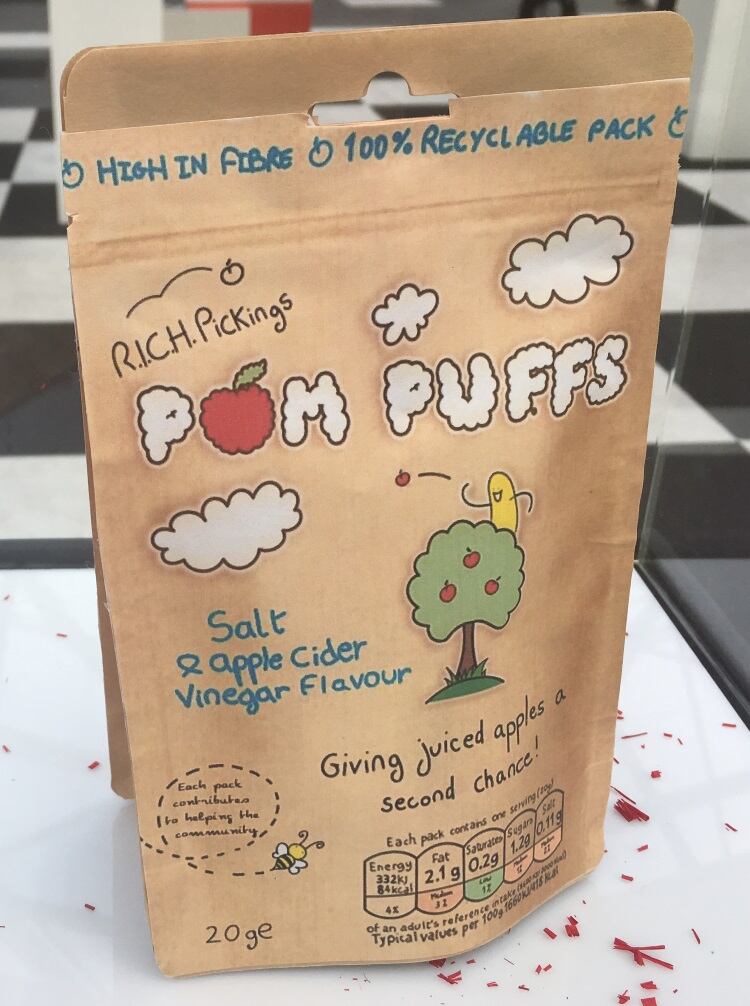 HIGH IN FIBRE 100% RECYCLABLE PACK
R.I.C.H. Pickings
POM PUFFS
Salt
& apple Cider
Vinegar Flavour
Giving juiced apples a
second chance!
Each pack
contributes
to helping the
community
Each pack contains one serving (20g)
Energy 332kJ 84kcal 4%
Fat 2.1g Medium 3%
Saturates 0.2g Low 1%
Sugars 1.2g Medium
Salt 0.11g Medium
of an adult's reference intake
Typical values per 100g 1660kJ/418kcal
20ge